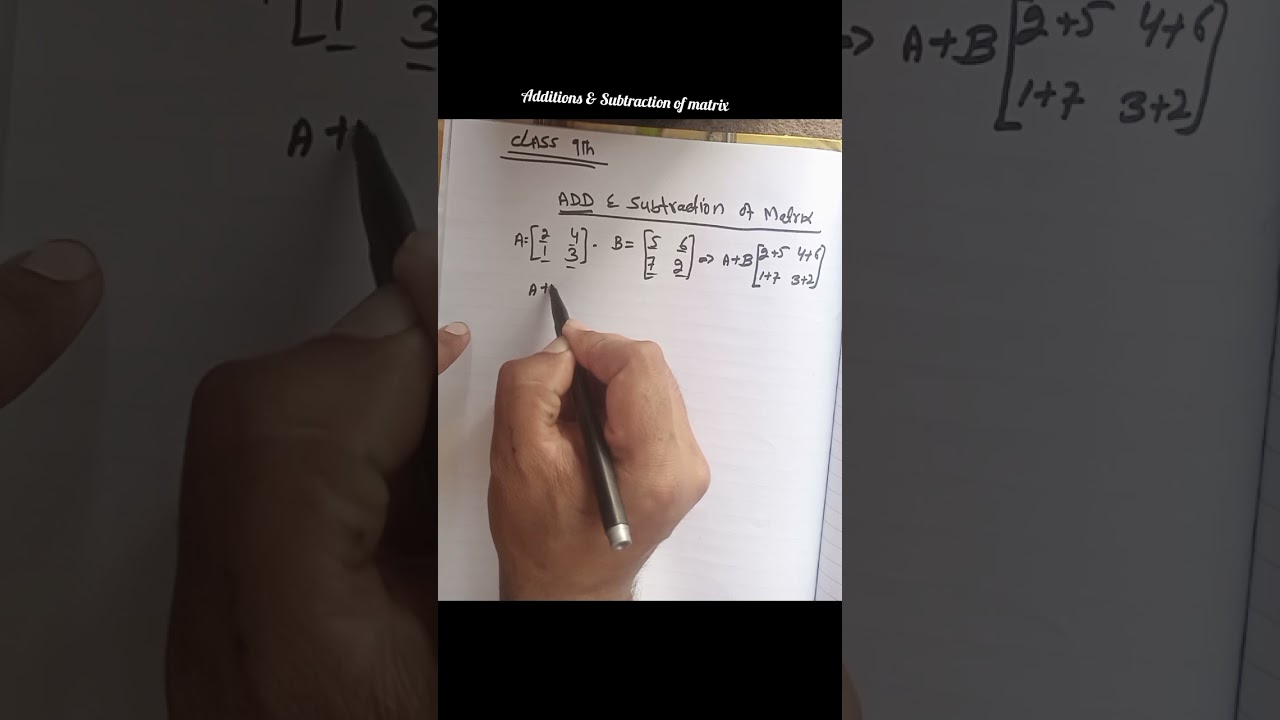 Additions & Subtraction of matrix
CLASS 9th
ADD & Subtraction of Matrix
A = [2 4 1 3] . B = [5 6 7 2] => A+B [2+5 4+6 1+7 3+2]
A +